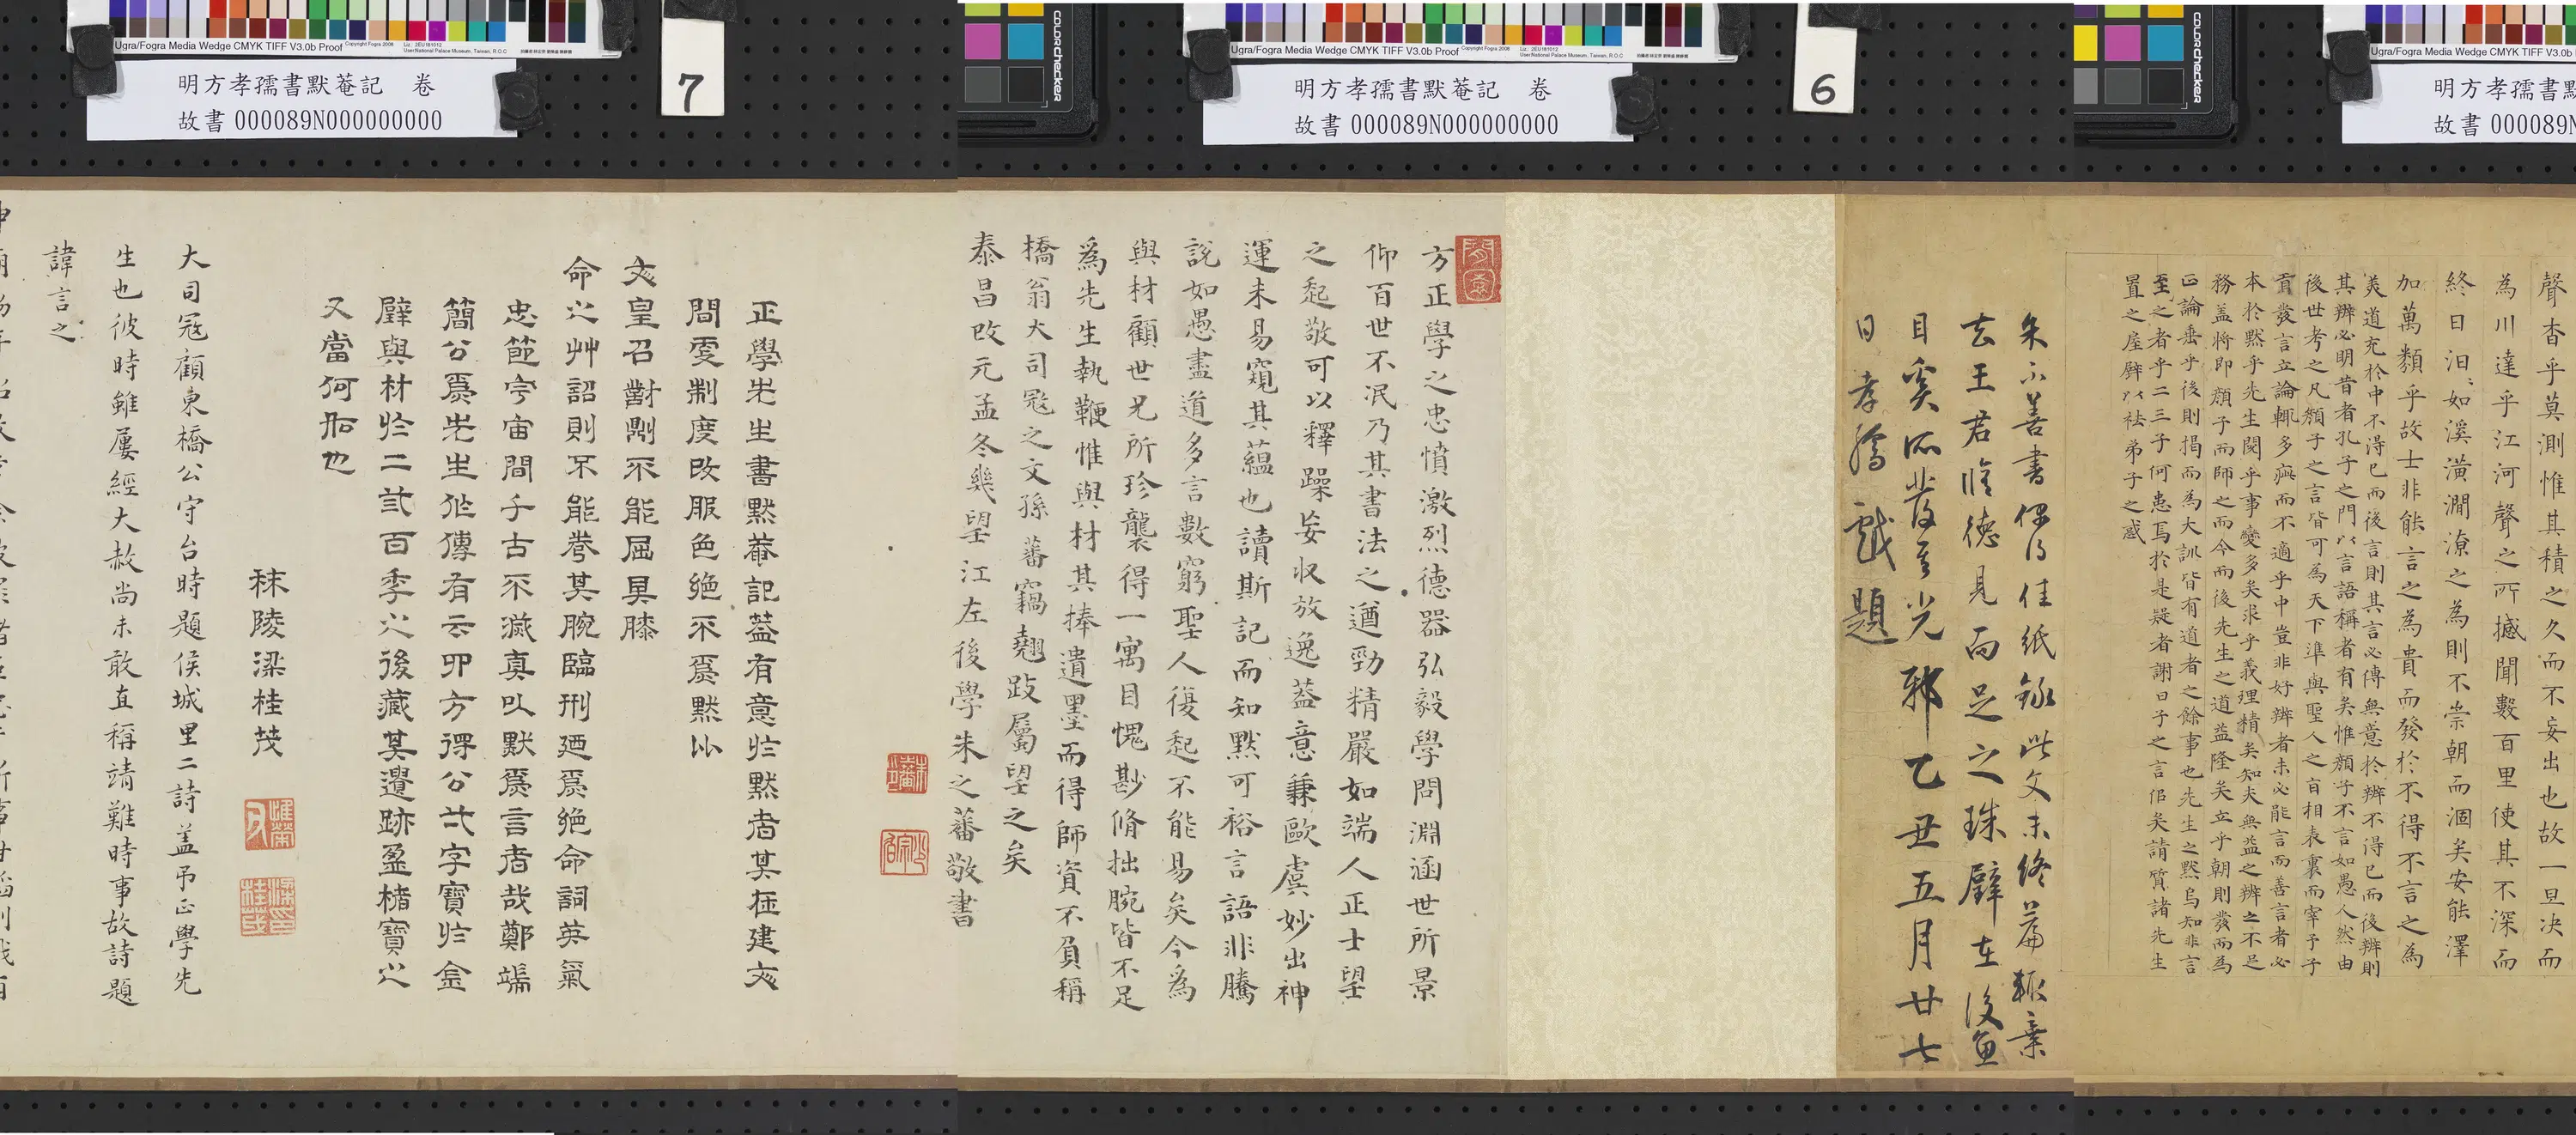 聲杳乎莫測惟其積之久而不妄出也故一旦决而
為川達乎江河聲之所撼聞數百里使其不深而
終日汩〻如溪潢澗潦之為則不崇朝而涸矣安能澤
加萬類乎故士非能言之為貴而發於不得不言之為
美道充於中不得已而後言則其言必傳無意於辨不得已而後辨則
其辨必明昔者孔子之門以言語稱者有矣惟顏子不言如愚人然由
後世考之凡顏子之言皆可為天下準與聖人之旨相表裏而宰予子
貢發言立論輒多疵而不適乎中豈非好辨者未必能言而善言者必
本於默乎先生閱乎事變多矣求乎義理精矣知夫無益之辨之不足
務盖將即顏子而師之而今而後先生之道益隆矣立乎朝則發而為
正論垂乎後則揭而為大訓皆有道者之餘事也先生之默烏知非言
至之者乎二三子何患焉於是疑者謝曰子之言佀矣請質諸先生
置之座壁以祛弟子之惑
朱不善書偶得佳紙錄此文未終篇輒棄
去王君脩德見而足之珠璧在後魚
目奚所發其光邪乙丑五月廿七
日孝孺戲題
方正學之忠憤激烈德器弘毅學問淵涵世所景
仰百世不泯乃其書法之遒勁精嚴如端人正士望
之起敬可以釋躁妄收放逸蓋意兼歐虞妙出神
運未易窺其蘊也讀斯記而知默可裕言語非騰
說如愚盡道多言數窮聖人復起不能易矣今為
與材顧世兄所珍襲得一寓目愧尠脩拙腕皆不足
為先生執鞭惟與材其捧遺墨而得師資不負稱
橋翁大司寇之文孫蕃竊翹跂屬望之矣
泰昌改元孟冬幾望江左後學朱之蕃敬書
正學先生書默菴記蓋有意於默者其在建文
間更制度改服色絕不為默以
文皇召對則不能屈其膝
命之艸詔則不能彎其腕臨刑迺為絕命詞英氣
忠節宇宙間千古不滅真以默為言者哉鄭端
簡公為先生作傳有云卯方得公片字寶於金
璧與材於二弍百季之後藏其遺跡盈楮寶之
又當何如也
秣陵梁桂茂
大司寇顧東橋公守台時題侯城里二詩盖弔正學先
生也彼時雖屢經大赦尚未敢直稱靖難時事故詩題
諱言之
明方孝孺書默菴記 卷
故書 000089N000000000
7
明方孝孺書默菴記 卷
故書 000089N000000000
6
明方孝孺書默
故書 000089N
Ugra/Fogra Media Wedge CMYK TIFF V3.0b Proof
Ugra/Fogra Media Wedge CMYK TIFF V3.0b Proof
Ugra/Fogra Media Wedge CMYK TIFF V3.0b
colorchecker
colorchecker